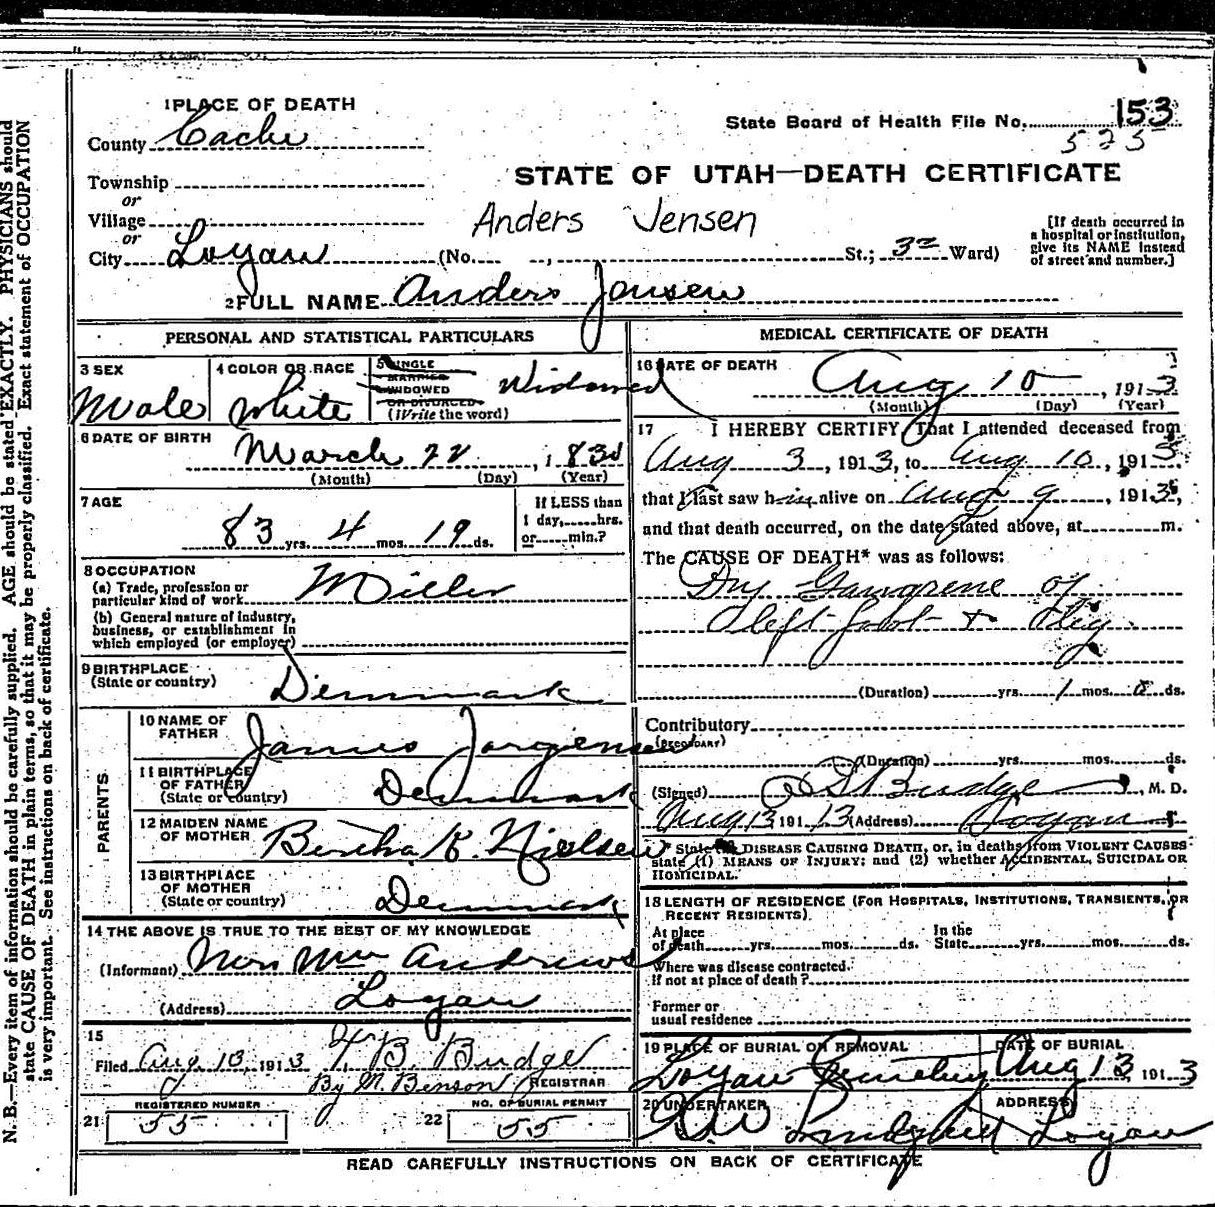 1 PLACE OF DEATH
County Cache
State Board of Health File No. 153
525
Township
or
STATE OF UTAH—DEATH CERTIFICATE
Village
or
Anders Jensen
City Logan (No. , St.; 3rd Ward)
[If death occurred in a hospital or institution, give its NAME instead of street and number.]
2 FULL NAME Anders Jensen
PERSONAL AND STATISTICAL PARTICULARS
3 SEX
Male
4 COLOR OR RACE
White
5 SINGLE
MARRIED
WIDOWED
OR DIVORCED
(Write the word)
Widowed
6 DATE OF BIRTH
March 22, 1830
(Month) (Day) (Year)
7 AGE
83 yrs. 4 mos. 19 ds.
If LESS than
1 day, hrs.
or min.?
8 OCCUPATION
(a) Trade, profession or
particular kind of work Miller
(b) General nature of industry,
business, or establishment in
which employed (or employer)
9 BIRTHPLACE
(State or country)
Denmark
PARENTS
10 NAME OF
FATHER
James Jorgensen
11 BIRTHPLACE
OF FATHER
(State or country)
Denmark
12 MAIDEN NAME
OF MOTHER
Bertha K. Nielsen
13 BIRTHPLACE
OF MOTHER
(State or country)
Denmark
14 THE ABOVE IS TRUE TO THE BEST OF MY KNOWLEDGE
(Informant) Andrews
(Address) Logan
15
Filed Aug. 13, 1913 T B Budge
By M. Benson REGISTRAR
21 REGISTERED NUMBER
55
22 NO. OF BURIAL PERMIT
55
MEDICAL CERTIFICATE OF DEATH
16 DATE OF DEATH
Aug 10, 1913
(Month) (Day) (Year)
17 I HEREBY CERTIFY, That I attended deceased from
Aug 3, 1913, to Aug 10, 1913
that I last saw him alive on Aug 9, 1913,
and that death occurred, on the date stated above, at m.
The CAUSE OF DEATH* was as follows:
Dry Gangrene of
left foot + leg
(Duration) yrs. 1 mos. 0 ds.
Contributory
(SECONDARY)
(Duration) yrs. mos. ds.
(Signed) Budge, M. D.
Aug 13, 1913 (Address) Logan
* State the DISEASE CAUSING DEATH, or, in deaths from VIOLENT CAUSES
state (1) MEANS OF INJURY; and (2) whether ACCIDENTAL, SUICIDAL OR
HOMICIDAL.
18 LENGTH OF RESIDENCE (FOR HOSPITALS, INSTITUTIONS, TRANSIENTS, OR
RECENT RESIDENTS).
At place
of death yrs. mos. ds.
In the
State yrs. mos. ds.
Where was disease contracted.
If not at place of death?
Former or
usual residence
19 PLACE OF BURIAL OR REMOVAL
Logan Cemetery
DATE OF BURIAL
Aug 13, 1913
20 UNDERTAKER
Lindquist
ADDRESS
Logan
READ CAREFULLY INSTRUCTIONS ON BACK OF CERTIFICATE
N. B.—Every item of information should be carefully supplied. AGE should be stated EXACTLY. PHYSICIANS should
state CAUSE OF DEATH in plain terms, so that it may be properly classified. Exact statement of OCCUPATION
is very important. See instructions on back of certificate.